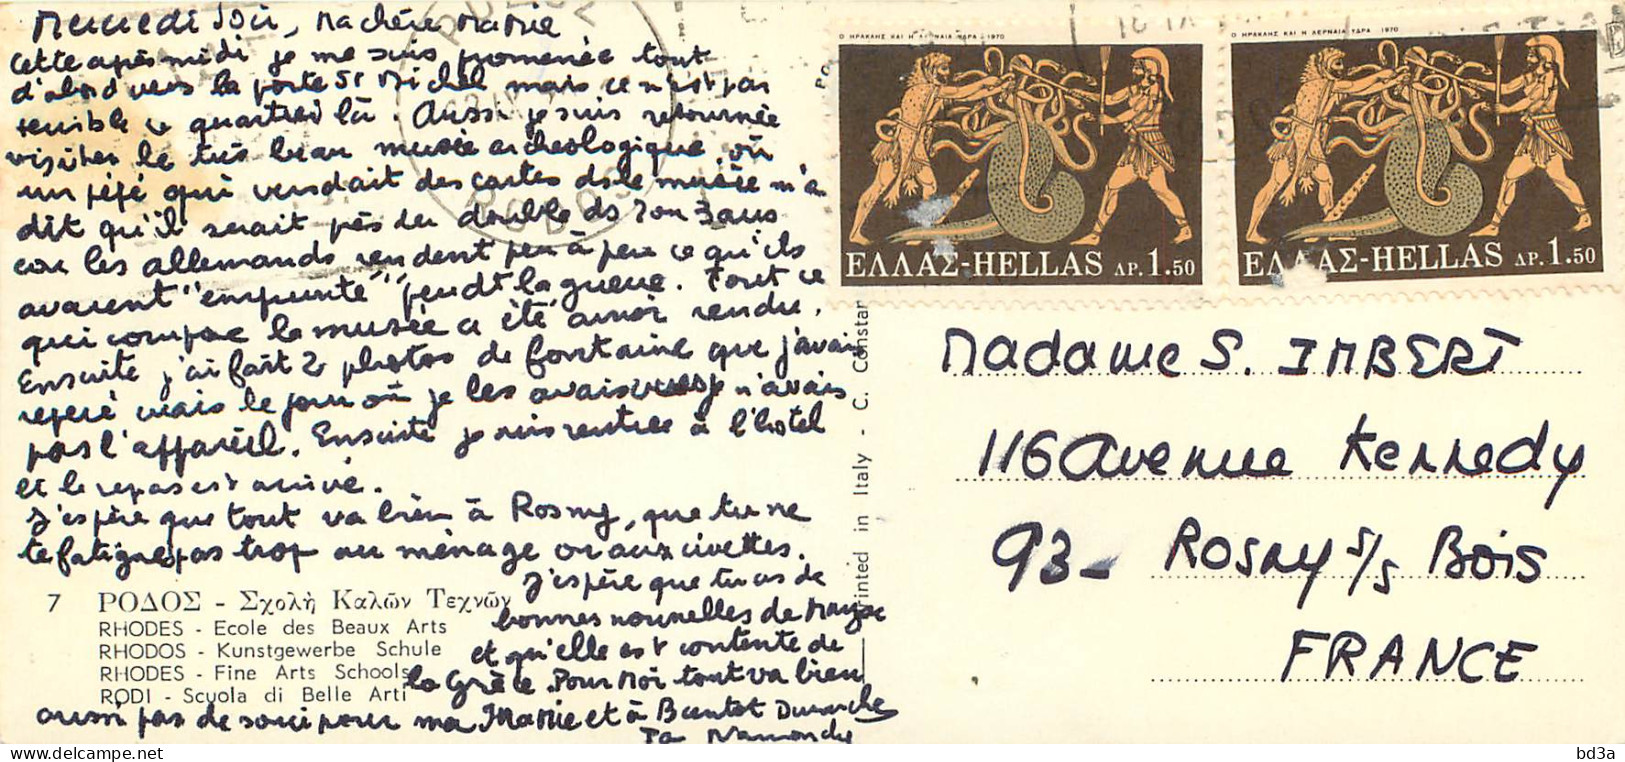 Mercredi soir, Ma chère Mamie
Cette après midi je me suis promenée tout
d'abord vers la porte St Michel mais ce n'est pas
terrible ce quartier là. Aussi je suis retournée
visiter le très beau musée archeologique, où
un pépé qui vendait des cartes ds le musée m'a
dit qu'il serait près du double ds 2 ou 3 ans
car les allemands rendent peu à peu ce qu'ils
avaient "emprunté" pendt la guerre. Tout ce
qui compose le musée a été ainsi rendu.
Ensuite j'ai fait 2 photos de fontaine que j'avais
repéré mais le jour où je les avais vues je n'avais
pas l'appareil. Ensuite je suis rentrée à l'hotel
et le repas est arrivé.
J'espère que tout va bien à Rosny, que tu ne
te fatigues pas trop au ménage ou aux civettes.
J'espère que tu as de
bonnes nouvelles de
et qu'elle est contente de
la Grèce. Pour moi tout va bien
aussi pas de souci pour ma Mamie et à Bientot Dimanche
Ta
7 ΡΟΔΟΣ - Σχολὴ Καλῶν Τεχνῶν
RHODES - Ecole des Beaux Arts
RHODOS - Kunstgewerbe Schule
RHODES - Fine Arts Schools
RODI - Scuola di Belle Arti
Printed in Italy - C.
Ο ΗΡΑΚΛΗΣ ΚΑΙ Η ΛΕΡΝΑΙΑ ΥΔΡΑ 1970
ΕΛΛΑΣ-HELLAS ΔΡ. 1.50
Ο ΗΡΑΚΛΗΣ ΚΑΙ Η ΛΕΡΝΑΙΑ ΥΔΡΑ 1970
ΕΛΛΑΣ-HELLAS ΔΡ. 1.50
Madame S. IMBERT
116 Avenue Kennedy
93- Rosny s/s Bois
FRANCE
bd3a